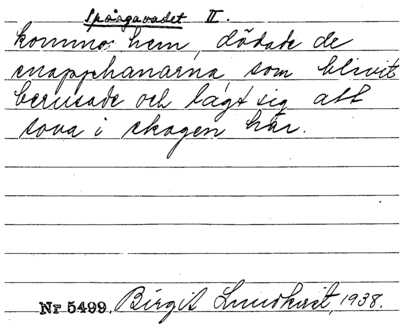 Spöagavadet II.
komma hem, dödade de
snapphanarna som blivit
berusade och lagt sig att
sova i skogen här.
Nr 5499. Birgit Lundkvist, 1938.